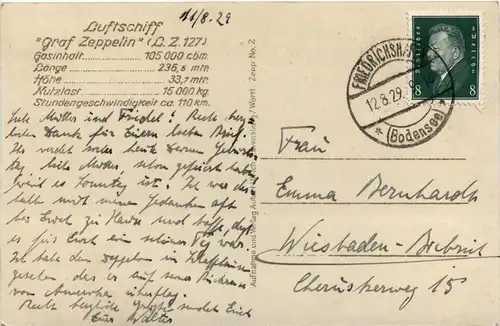 11/8.29
Luftschiff
"Graf Zeppelin" (L.Z.127)
Gasinhalt 105 000 cbm.
Länge 236,6 mtr.
Höhe 33,7 mtr.
Nutzlast 15 000 kg.
Stundengeschwindigkeit ca 110 km.
Liebe Mutter und Friedel! Recht herz-
lichen Dank für Euren lieben Brief.
Ihr werdet heute Deinen Geburts-
tag liebe Mutter, schon gefeiert haben
weil es Sonntag ist. Ich war des-
halb mit meinen Gedanken oft
bei Euch zu Hause und hoffe, daß
es für Euch ein schöner Tag war.
Ich habe den Zeppelin in
gesehen, als er auf seiner Rückreise
von Amerika überflog.
Recht herzliche Grüße sendet Euch
Euer Walter
Zepp. No. 2
FRIEDRICHSHAFEN
12.8.29.
(Bodensee)
Deutsches Reich
8 8
Frau
Emma Bernhardt
Wiesbaden-Biebrich
Cheruskerweg 15